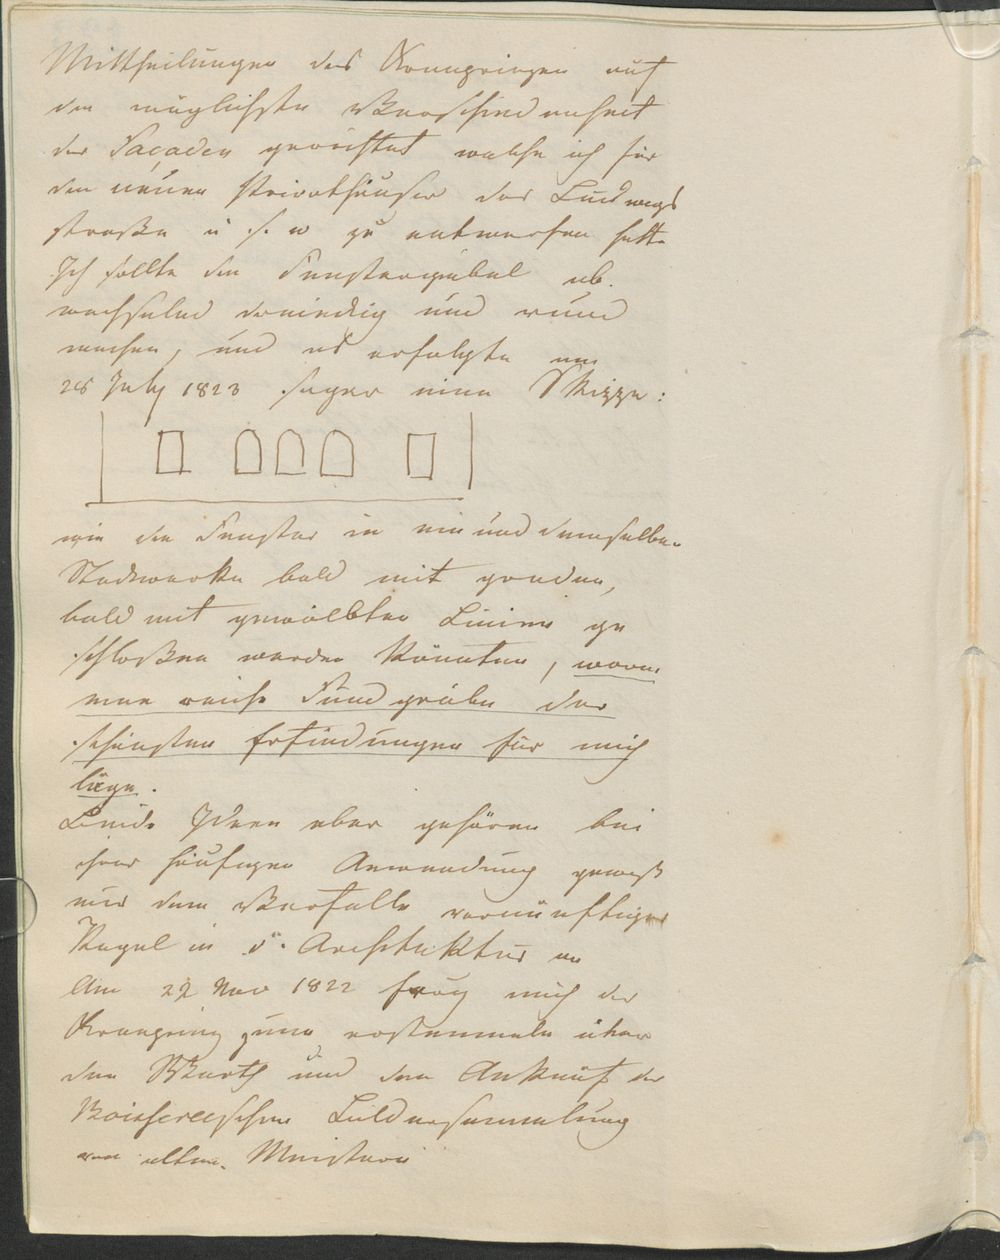 Mittheilungen des Kronprinzen auf
die möglichste Verschiedenheit
der Façaden gerichtet welche ich für
die neuen Privathäuser der Ludwigs
straße u s. w zu entwerfen hatte
Ich sollte die Fenstergiebel ab.
wechselnd dreieckig und rund
machen, und es erfolgte am
28 July 1823 sogar eine Skizze:
wie die Fenster in ein und demselben
Stockwerke bald mit geraden,
bald mit gewölbten Linien ge
schloßen werden könnten, worin
eine reiche Fundgrube der
schönsten Erfindungen für mich
läge.
Beide Ideen aber gehören bei
ihrer häufigen Anwendung gewiß
nur dem Verfalle vernünftiger
Regel in d. Architektur an
Am 22 Nov 1822 frug mich der
Kronprinz zum erstenmale über
den Werth und den Ankauf der
Boissereeschen Bildersammlung
von alten Meistern